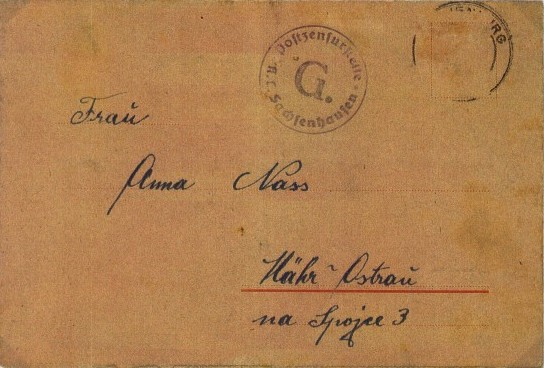 Postzensurstelle
G.
Sachsenhausen
Frau
Anna Nass
Mähr-Ostrau
na Spojce 3